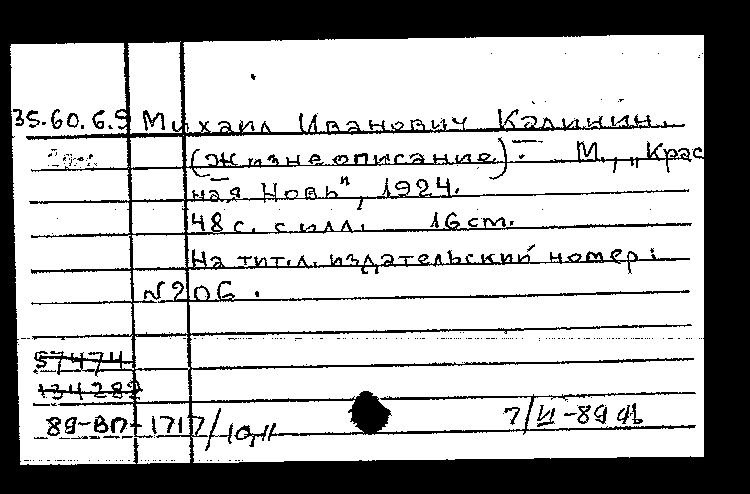 35.60.6.9 Михаил Иванович Калинин.
(Жизнеописание). М., „Крас
ная Новь", 1924.
48 с. с илл. 16 cm.
На тит.л. издательский номер:
N206.
57474
134282
89-ВП-1717/10,11 7/II-89